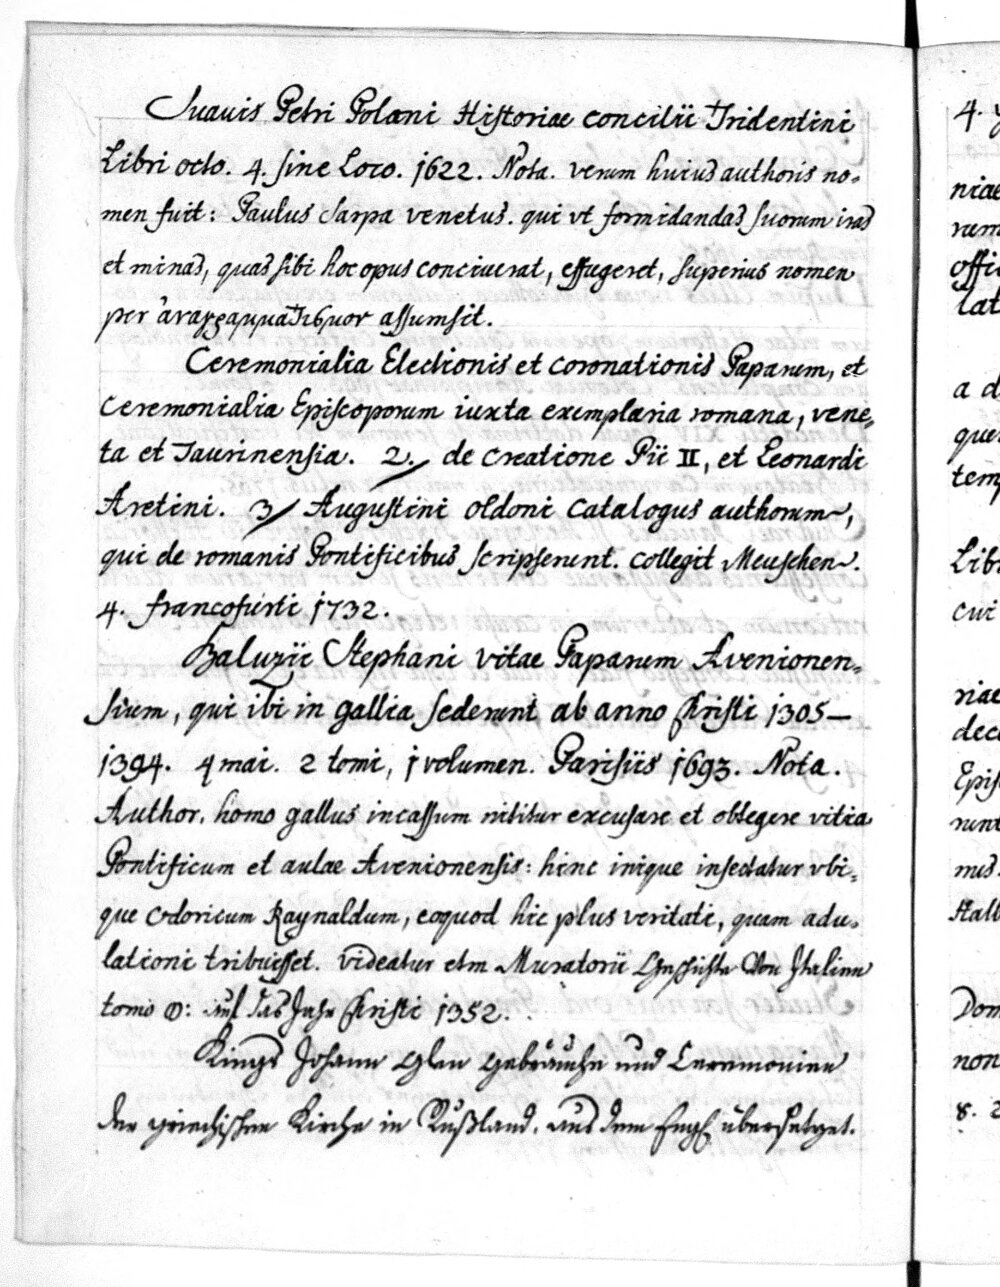 Suavis Petri Polani Historiae concilii Tridentini
Libri octo. 4. sine Loco. 1622. Nota. verum huius authoris no-
men fuit: Paulus Sarpa venetus. qui vt formidandas suorum iras
et minas, quas sibi hoc opus conciverat, effugeret, superius nomen
per assumsit.
Ceremonialia Electionis et coronationis Paparum, et
Ceremonialia Episcoporum iuxta exemplaria romana, vene-
ta et Taurinensia. 2./ de creatione Pii II, et Leonardi
Aretini. 3/ Augustini oldoni catalogus authorum,
qui de romanis Pontificibus scripserunt. collegit Meuschen.
4. francofurti 1732.
Baluzii Stephani vitae Paparum Avenionen-
sium, qui ibi in gallia sederunt ab anno Christi 1305–
1394. 4 mai. 2 tomi, 1 volumen. Parisiis 1693. Nota.
Author, homo gallus incassum nititur excusare et obtegere vitia
Pontificum et aulae Avenionensis: hinc inique insectatur vbi-
que odoricum Raynaldum, eoquod hic plus veritati, quam adu-
lationi tribuisset. videatur etm Muratorii Geschichte Von Italien
tomo auf das Jahr Christi 1352.
Kings Johann Glen Gebräuche und Ceremonien
der griechischen Kirche in Rußland, aus dem Engl. übersetzet.
4.
niae
rum
offi
lat
a d
que
temp
Libr
cui
riae
dec
Epis
runt
mus.
Hall
Dom
non
8.